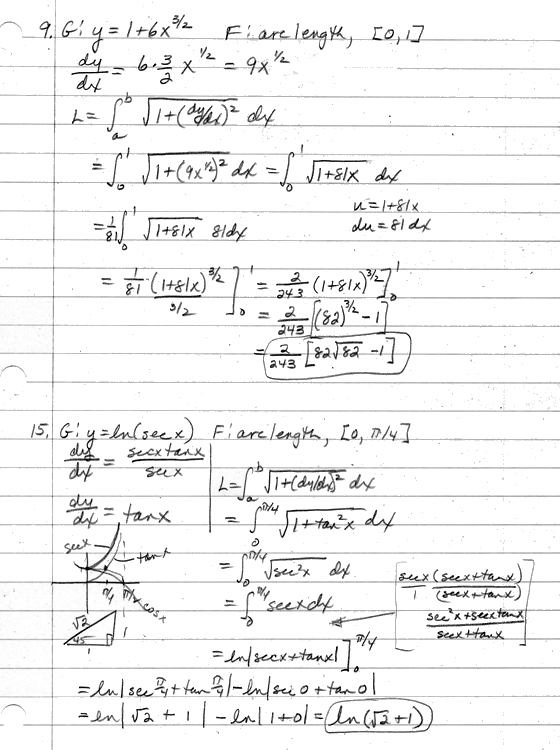 9. G: y = 1+6x^{3/2}   F: arc length, [0,1]
dy/dx = 6·3/2 x^{1/2} = 9x^{1/2}
L = ∫_a^b √(1+(dy/dx)^2) dx
= ∫_0^1 √(1+(9x^{1/2})^2) dx = ∫_0^1 √(1+81x) dx
u = 1+81x
du = 81 dx
= 1/81 ∫_0^1 √(1+81x) 81dx
= 1/81 · (1+81x)^{3/2} / (3/2) ]_0^1 = 2/243 (1+81x)^{3/2} ]_0^1
= 2/243 [(82)^{3/2} - 1]
= 2/243 [82√82 - 1]
15. G: y = ln(sec x)   F: arc length, [0, π/4]
dy/dx = secx tanx / secx
dy/dx = tanx
L = ∫_a^b √(1+(dy/dx)^2) dx
= ∫_0^{π/4} √(1+tan^2x) dx
= ∫_0^{π/4} √(sec^2x) dx
= ∫_0^{π/4} secx dx
secx/1 (secx+tanx)/(secx+tanx)
(sec^2x+secxtanx)/(secx+tanx)
secx
tanx
π/4 π/2 cosx
√2
45
1
1
= ln|secx+tanx| ]_0^{π/4}
= ln|sec π/4 + tan π/4| - ln|sec 0 + tan 0|
= ln|√2 + 1| - ln|1+0| = ln(√2+1)